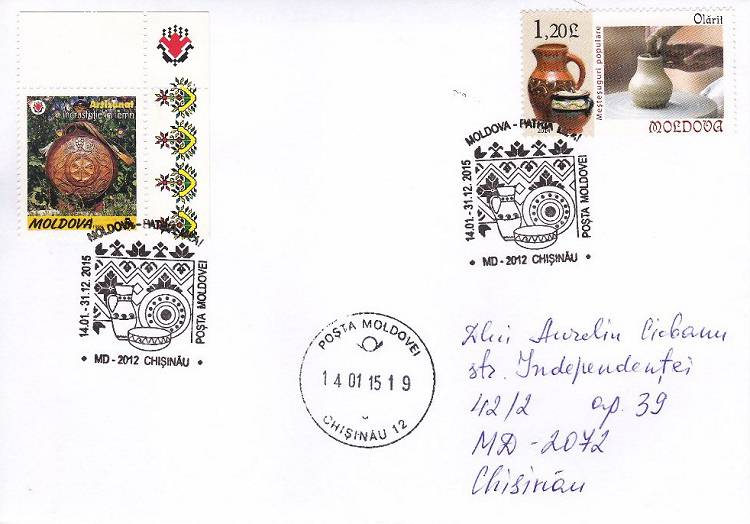 Artisanat
încrustație în lemn
MOLDOVA
1,20L
Meșteșuguri populare
Olărit
MOLDOVA
MOLDOVA - PATRIA MEA!
14.01.-31.12.2015
POȘTA MOLDOVEI
• MD - 2012 CHIȘINĂU •
MOLDOVA - PATRIA MEA!
14.01.-31.12.2015
POȘTA MOLDOVEI
• MD - 2012 CHIȘINĂU •
POȘTA MOLDOVEI
14 01 15 19
CHIȘINĂU 12
Dlui Aureliu Ciobanu
str. Independenței
42/2 ap. 39
MD - 2072
Chișinău